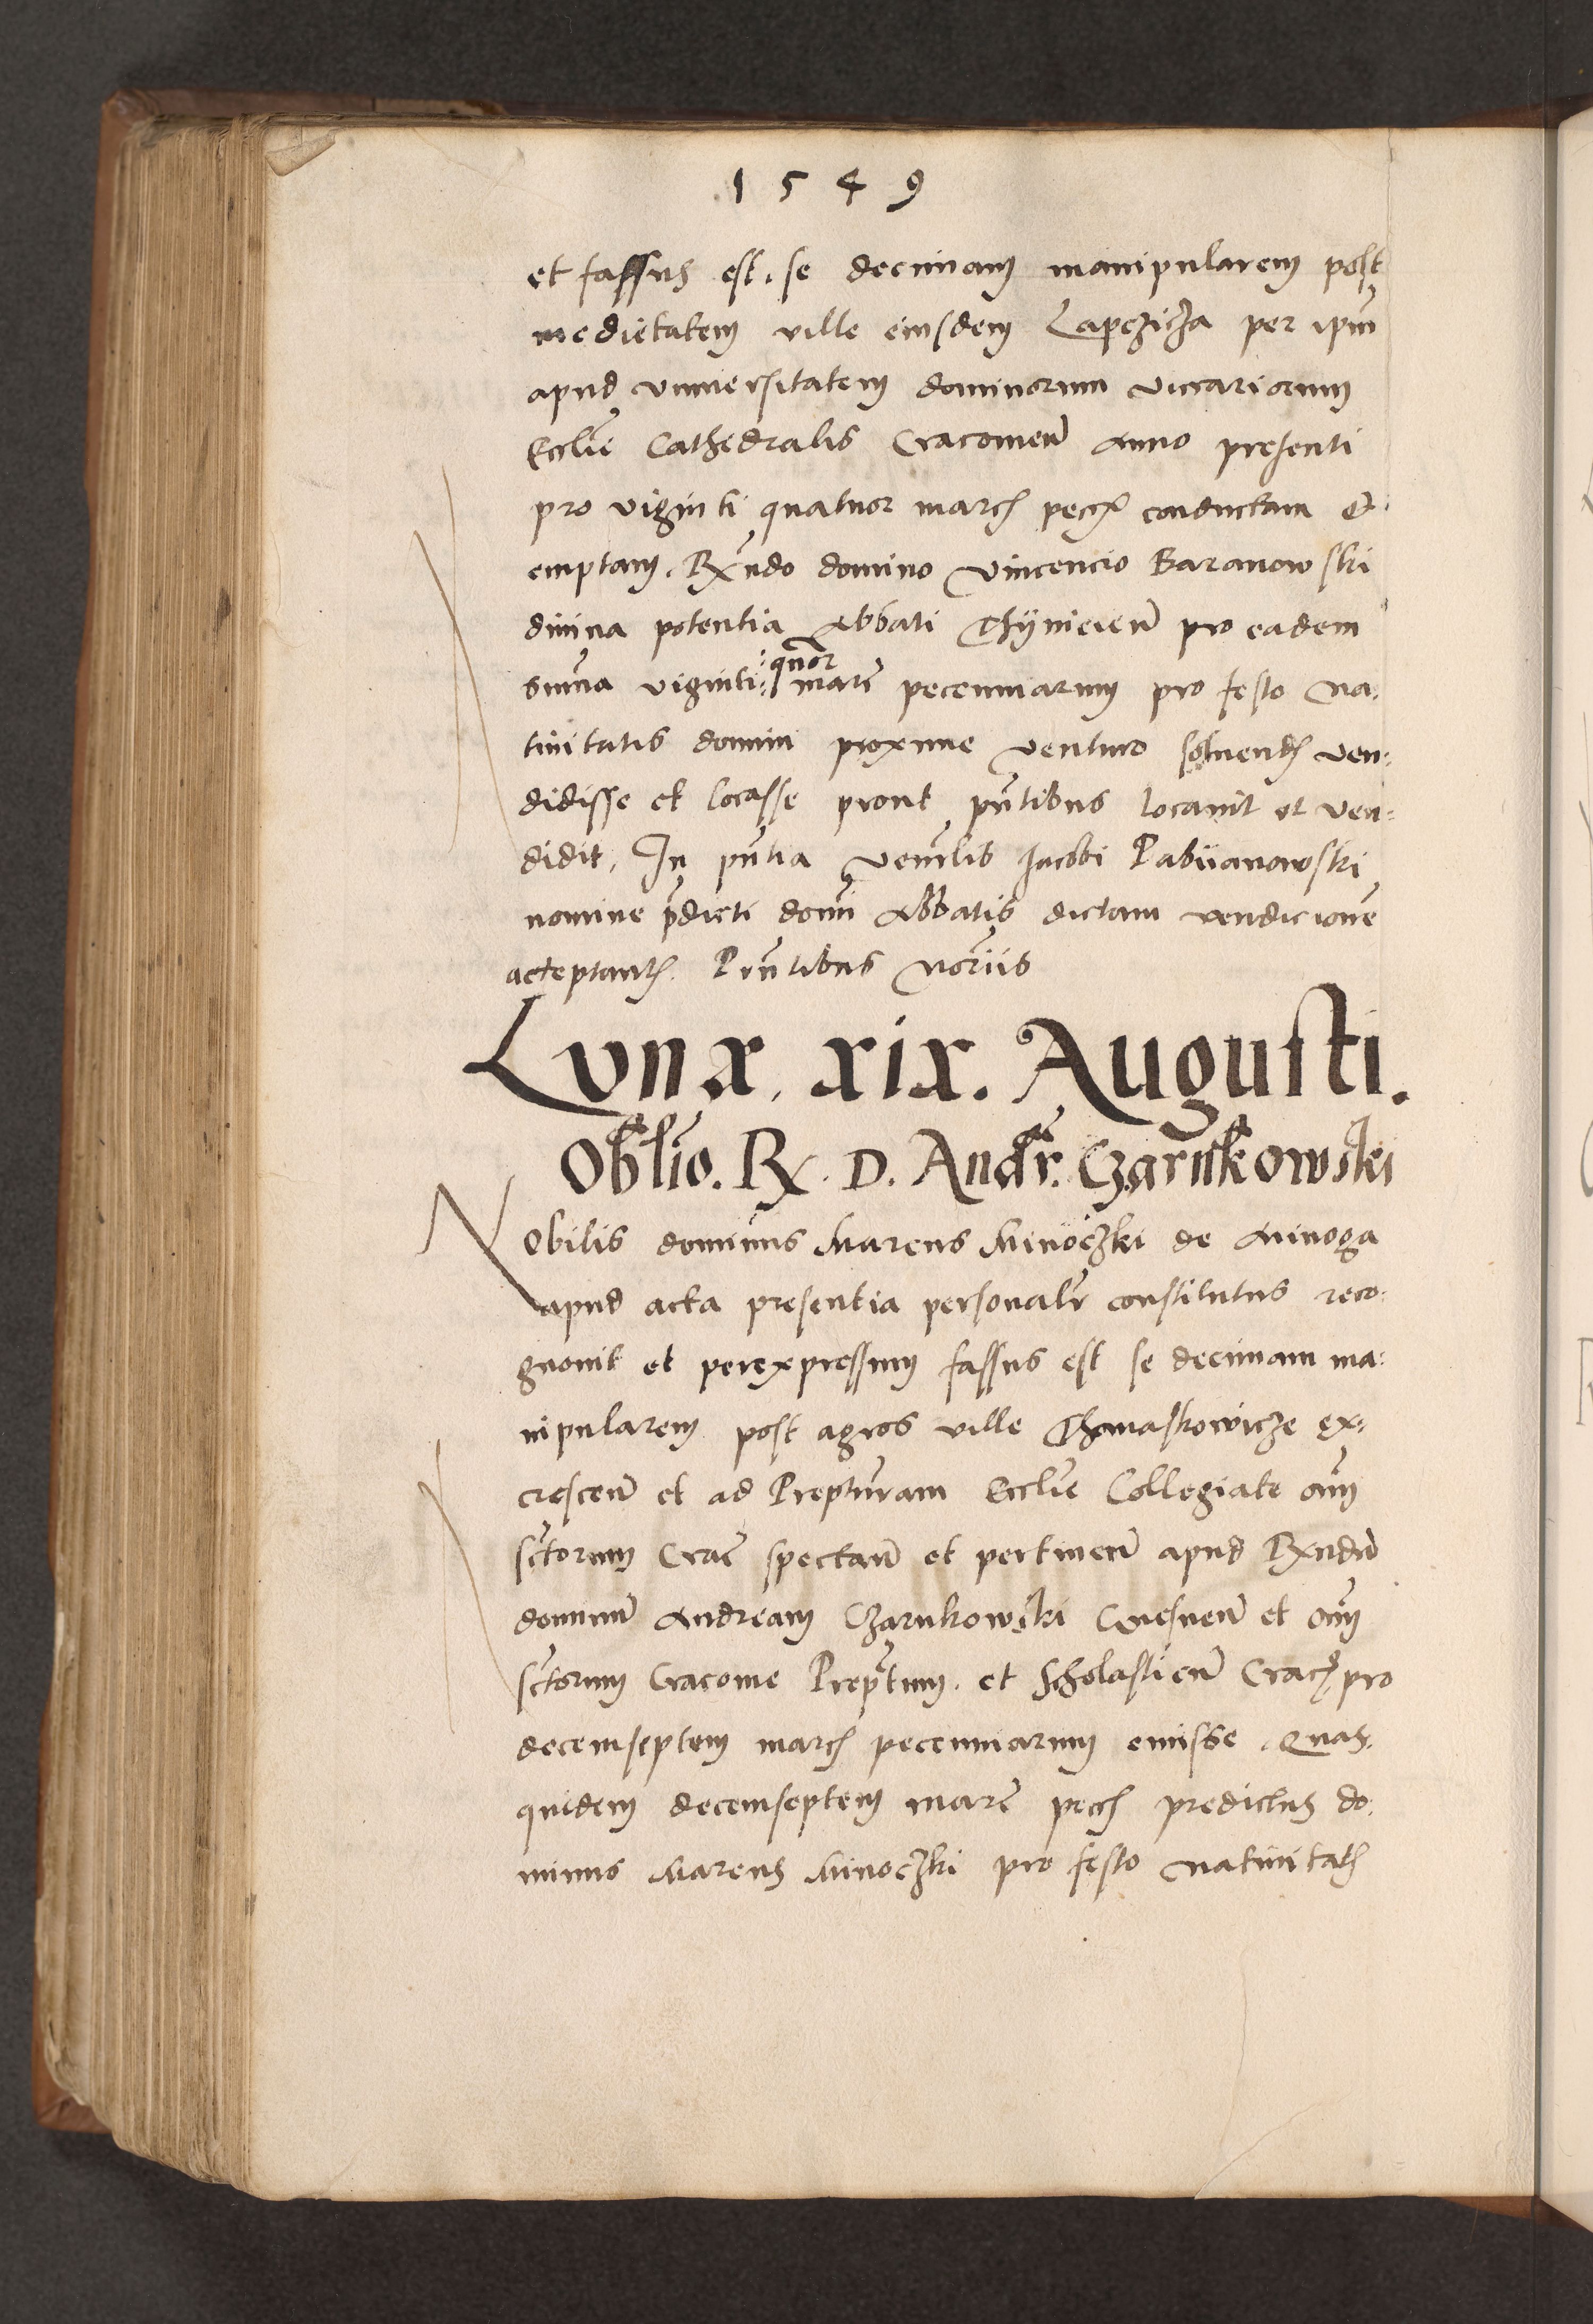 1549
et fassus est, se decimam manipularem post
medietatem ville eiusdem Lapczicza per ipm̄
apud vniuersitatem dominorum vicariorum
Eccliē Cathedralis Cracouien̄ Anno presenti
pro viginti quatuor marcȩ peccȩ conductam et
emptam, Rx̄ndo domino Vincencio Baranowski
diuina potentia Abbati Thÿniecien̄ pro eadem
sum̄a viginti :quōr marc̄ peccuniarum pro festo Na:
tiuitatis domini proxime venturo soluendȩ ven:
didisse et locasse prout pn̄tibus locauit et ven:
didit, In pn̄tia Venēlis Jacobi Pabiianowski
nomine p̄dicti domī Abbatis dictam vendicionē
acceptantȩ. Prn̄tibus Notriis
Lvnæ, xix. Augusti.
Oblīo. Rx. D. Andr̄. Czarnkowski
Nobilis dominus Marcus Minoczki de Minoga
apud acta presentia personalr̄ constitutus reco:
gnouit et perexpressum fassus est se decimam ma:
nipularem post agros ville Thomaskowicze ex:
crescen̄ et ad Prepturam Eccliē Collegiate om̄
sctōrum Crac̄ spectan̄ et pertinen̄ apud Rxndū
dominū Andream Czarnkowski Gnesnen̄ et om̄
sctōrum Cracouie Prep̄tum, et Scholasticū Cracȩ pro
decemseptem marcȩ peccuniarum emisse, Quas
quidem decemseptem marc̄ peccȩ predictus do:
minus Marcus Minoczki pro festo Natiuitatȩ